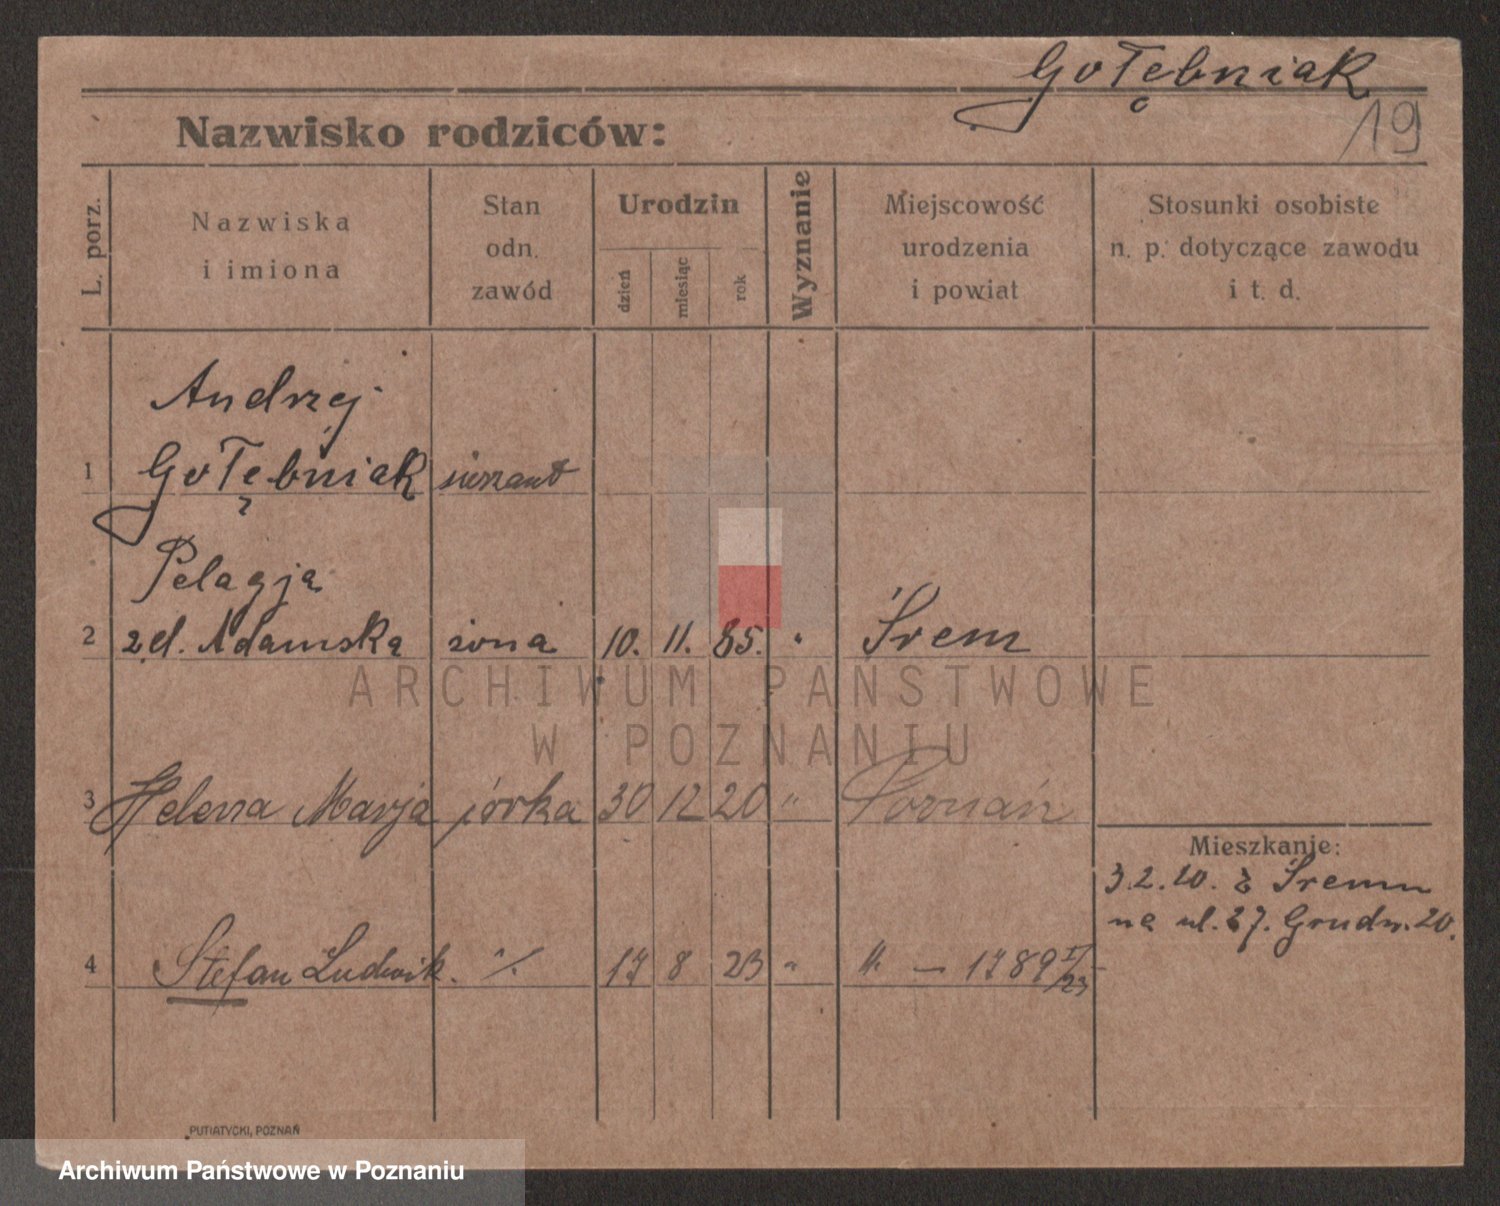 Gołębniak
19
Nazwisko rodziców:
L. porz.
Nazwiska
i imiona
Stan
odn.
zawód
Urodzin
dzień
miesiąc
rok
Wyznanie
Miejscowość
urodzenia
i powiat
Stosunki osobiste
n. p. dotyczące zawodu
i t. d.
Andrzej
1 Gołębniak
Pelagja
2 zd. Adamska żona 10. 11. 85. " Śrem
ARCHIWUM PAŃSTWOWE
W POZNANIU
3 Helena Marja córka 30 12 20 " Poznań
Mieszkanie:
3.2.20. z Śremu
na ul. 27. Grudn. 20.
4 Stefan Ludwik. 17 8 23 " " — 1789 I/23
PUTIATYCKI, POZNAŃ
Archiwum Państwowe w Poznaniu